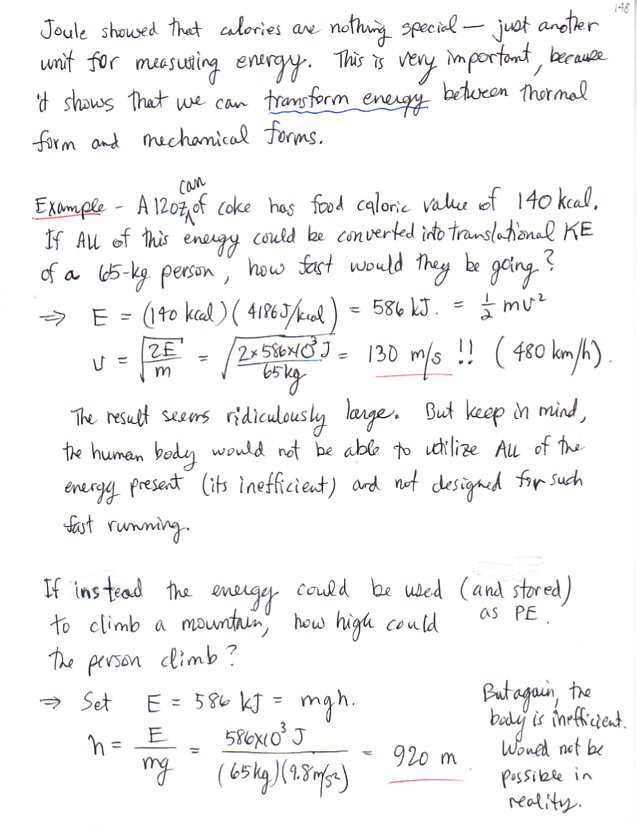 148
Joule showed that calories are nothing special — just another
unit for measuring energy. This is very important, because
it shows that we can transform energy between thermal
form and mechanical forms.
Example - A 12oz can of coke has food caloric value of 140 kcal.
If ALL of this energy could be converted into translational KE
of a 65-kg person, how fast would they be going?
⇒ E = (140 kcal)(4186J/kcal) = 586 kJ. = 1/2 mv²
v = √(2E/m) = √(2×586×10³ J/65kg) = 130 m/s !! (480 km/h).
The result seems ridiculously large. But keep in mind,
the human body would not be able to utilize ALL of the
energy present (its inefficient) and not designed for such
fast running.
If instead the energy could be used (and stored)
as PE.
to climb a mountain, how high could
the person climb?
⇒ Set E = 586 kJ = mgh.
h = E/mg = 586×10³ J/(65kg)(9.8m/s²) = 920 m
But again, the
body is inefficient.
Would not be
possible in
reality.